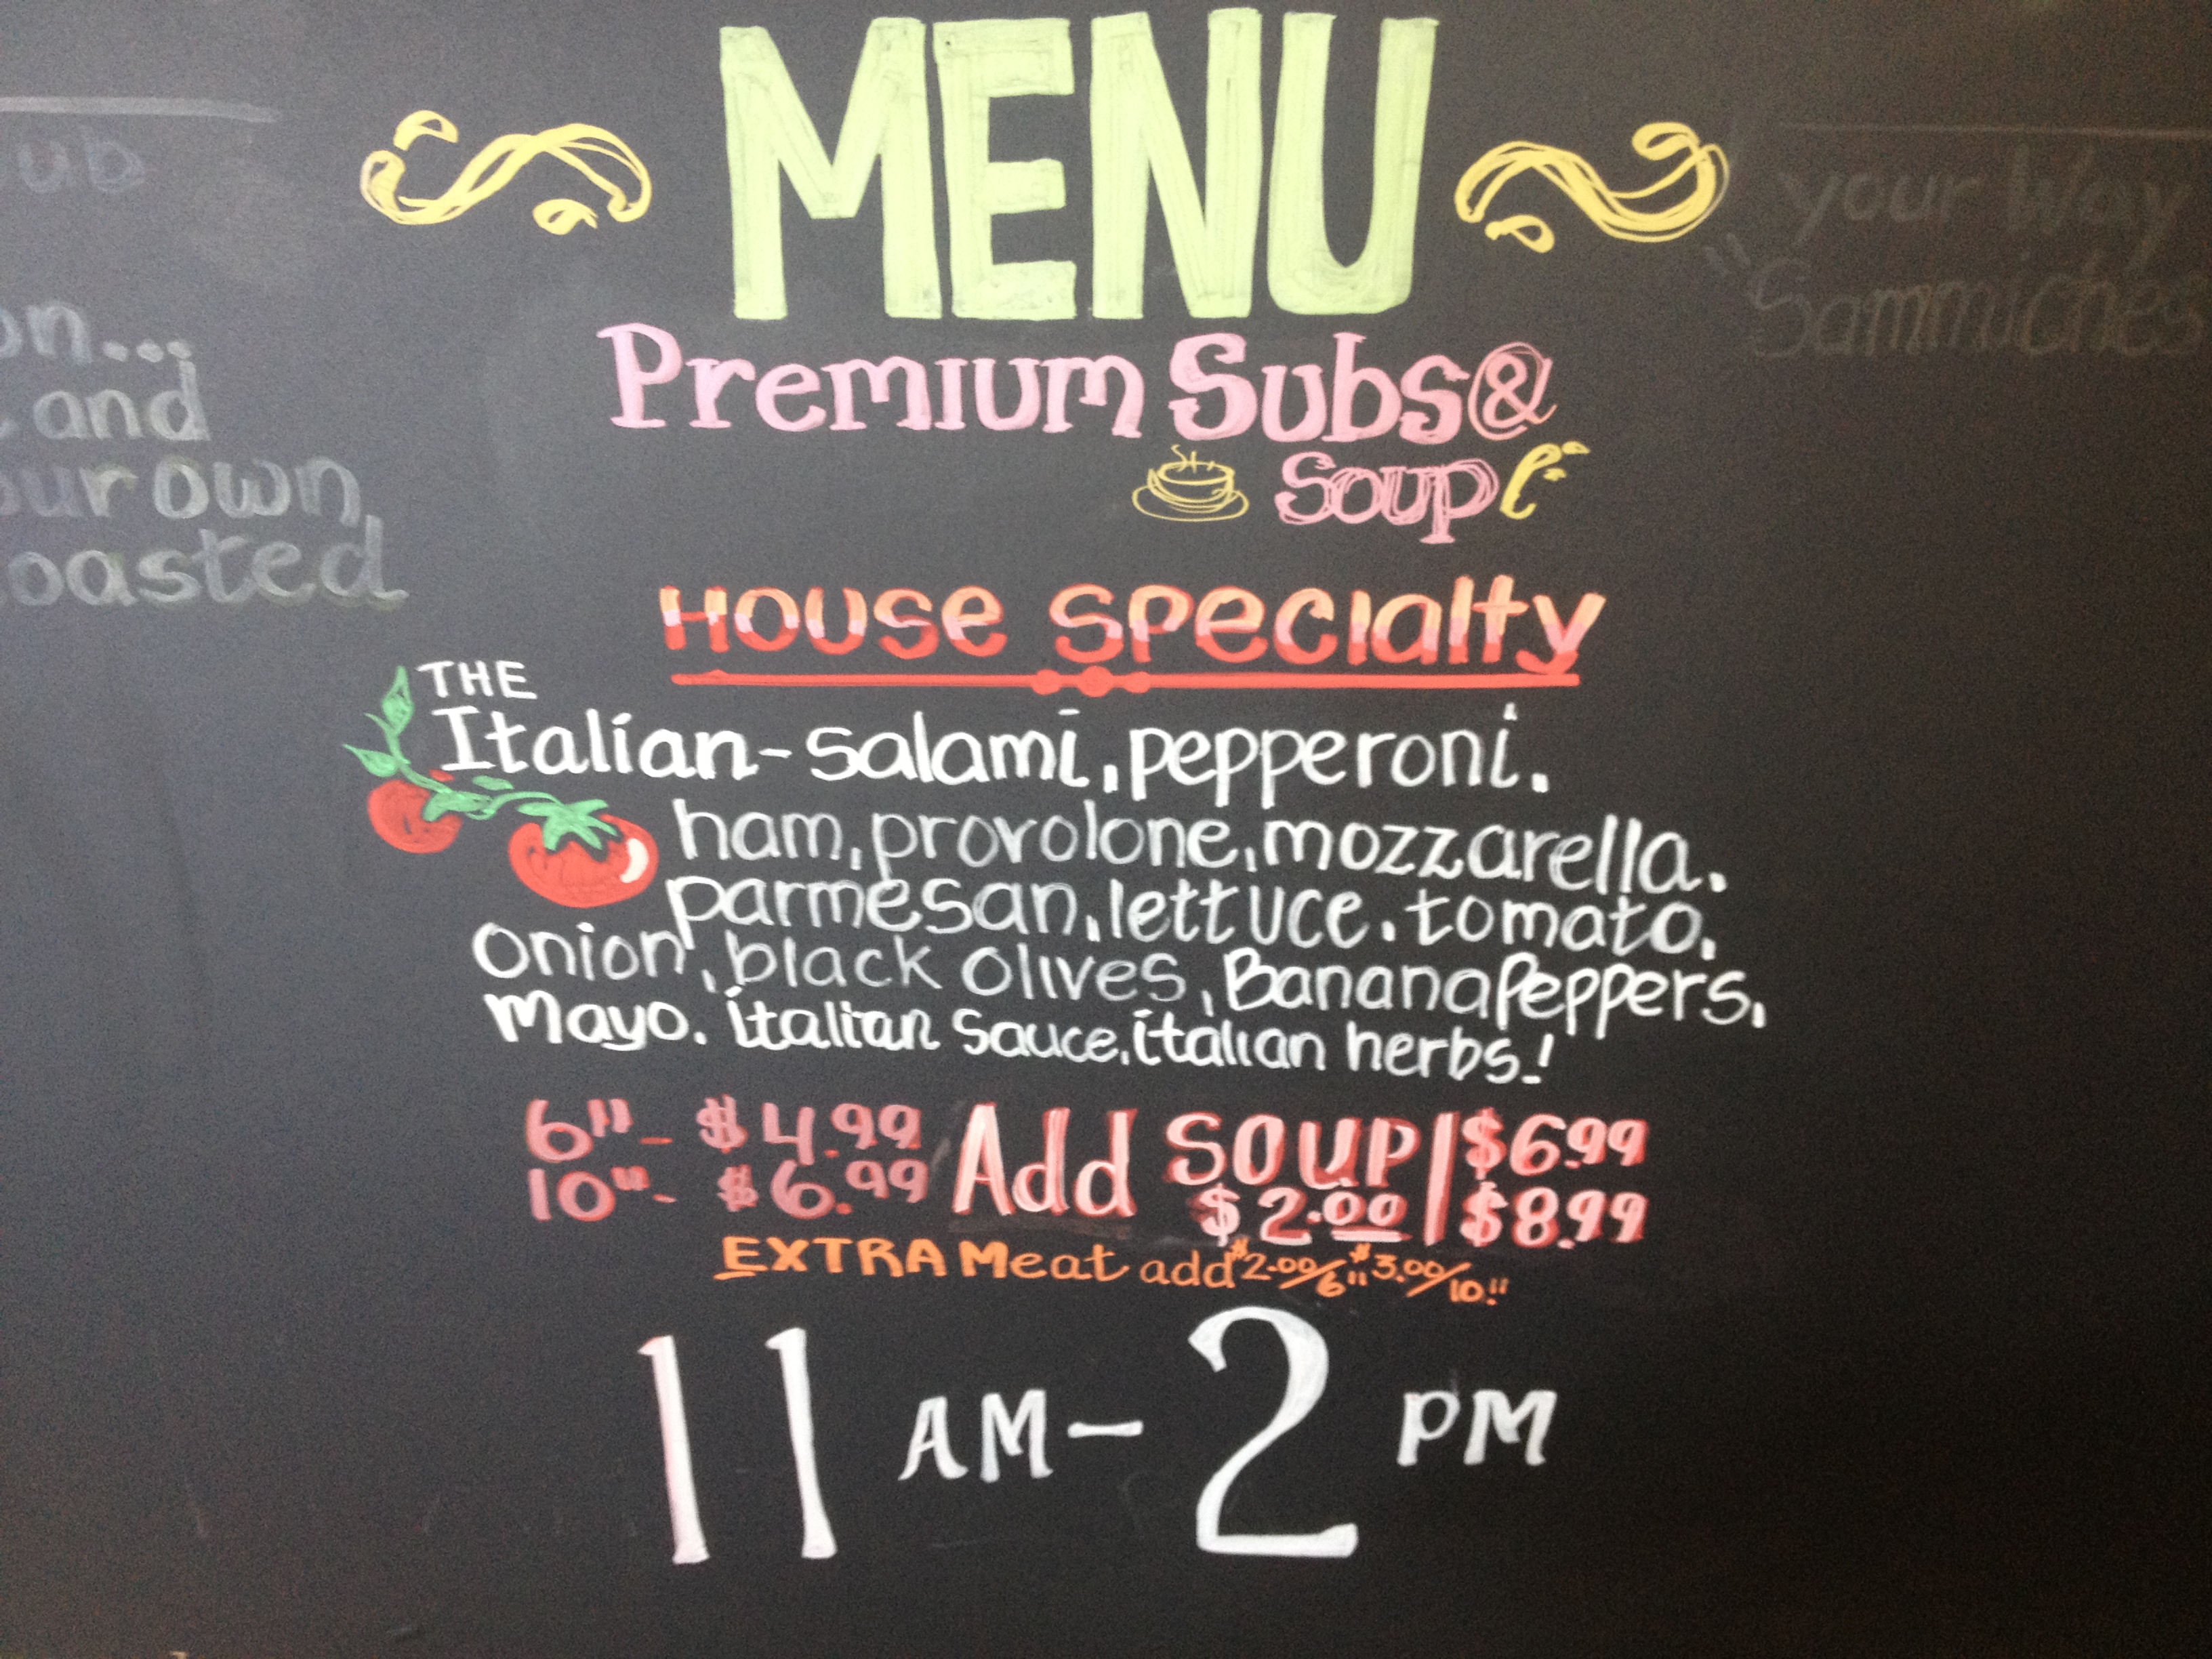 MENU
Premium Subs &
Soup
House Specialty
THE
Italian-salami, pepperoni.
ham, provolone, mozzarella.
parmesan, lettuce, tomato,
Onion, black olives, Banana Peppers,
Mayo. italian Sauce, italian herbs!
6"- $4.99 Add SOUP | $6.99
10"- $6.99 $2.00 | $8.99
EXTRA Meat add $2.00/6" $3.00/10"
11 AM - 2 PM
ub
on...
and
our own
oasted
your Way
"Sammiches